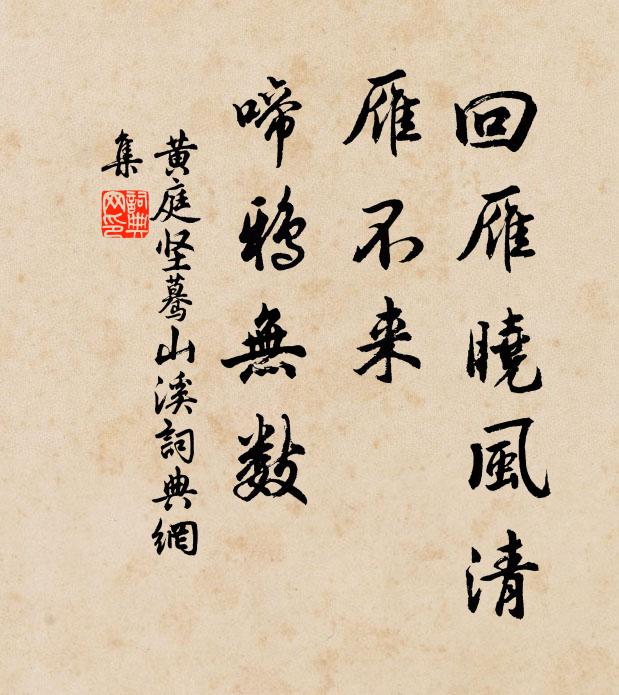 回雁曉風清
雁不来
啼鴉無数
黄庭坚驀山溪詞典網
集
詞典網印